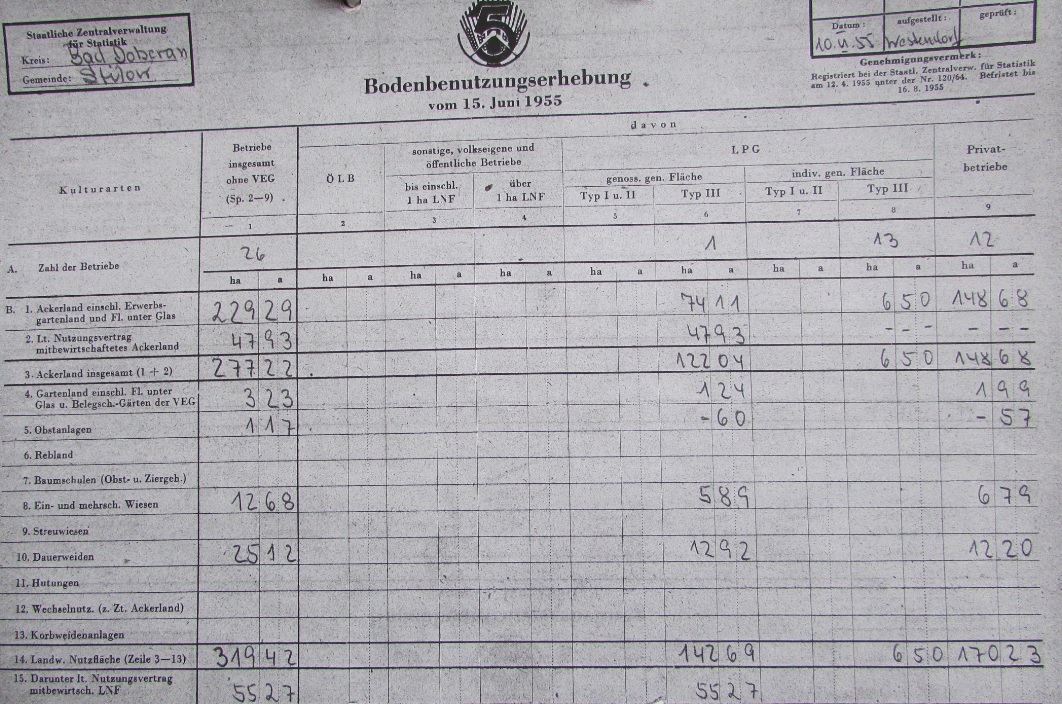 Staatliche Zentralverwaltung
für Statistik
Kreis: Bad Doberan
Gemeinde:
5
Datum: aufgestellt: geprüft:
Genehmigungsvermerk:
Registriert bei der Staatl. Zentralverw. für Statistik
am 12. 4. 1955 unter der Nr. 120/64. Befristet bis
16. 8. 1955
Bodenbenutzungserhebung
vom 15. Juni 1955
Kulturarten
Betriebe
insgesamt
ohne VEG
(Sp. 2—9)
davon
ÖLB
sonstige, volkseigene und
öffentliche Betriebe
bis einschl.
1 ha LNF
über
1 ha LNF
LPG
genoss. gen. Fläche
Typ I u. II Typ III
indiv. gen. Fläche
Typ I u. II Typ III
Privat-
betriebe
1 2 3 4 5 6 7 8 9
A. Zahl der Betriebe 26 1 13 12
ha a ha a ha a ha a ha a ha a ha a ha a ha a
B. 1. Ackerland einschl. Erwerbs-
gartenland und Fl. unter Glas 229 29 74 11 6 50 148 68
2. Lt. Nutzungsvertrag
mitbewirtschaftetes Ackerland 47 93 47 93 - - - - - -
3. Ackerland insgesamt (1 + 2) 277 22 122 04 6 50 148 68
4. Gartenland einschl. Fl. unter
Glas u. Belegsch.-Gärten der VEG 3 23 1 24 1 99
5. Obstanlagen 1 17 - 60 - 57
6. Rebland
7. Baumschulen (Obst- u. Ziergeh.)
8. Ein- und mehrsch. Wiesen 12 68 5 89 6 79
9. Streuwiesen
10. Dauerweiden 25 12 12 92 12 20
11. Hutungen
12. Wechselnutz. (z. Zt. Ackerland)
13. Korbweidenanlagen
14. Landw. Nutzfläche (Zeile 3—13) 319 42 142 69 6 50 170 23
15. Darunter lt. Nutzungsvertrag
mitbewirtsch. LNF 55 27 55 27